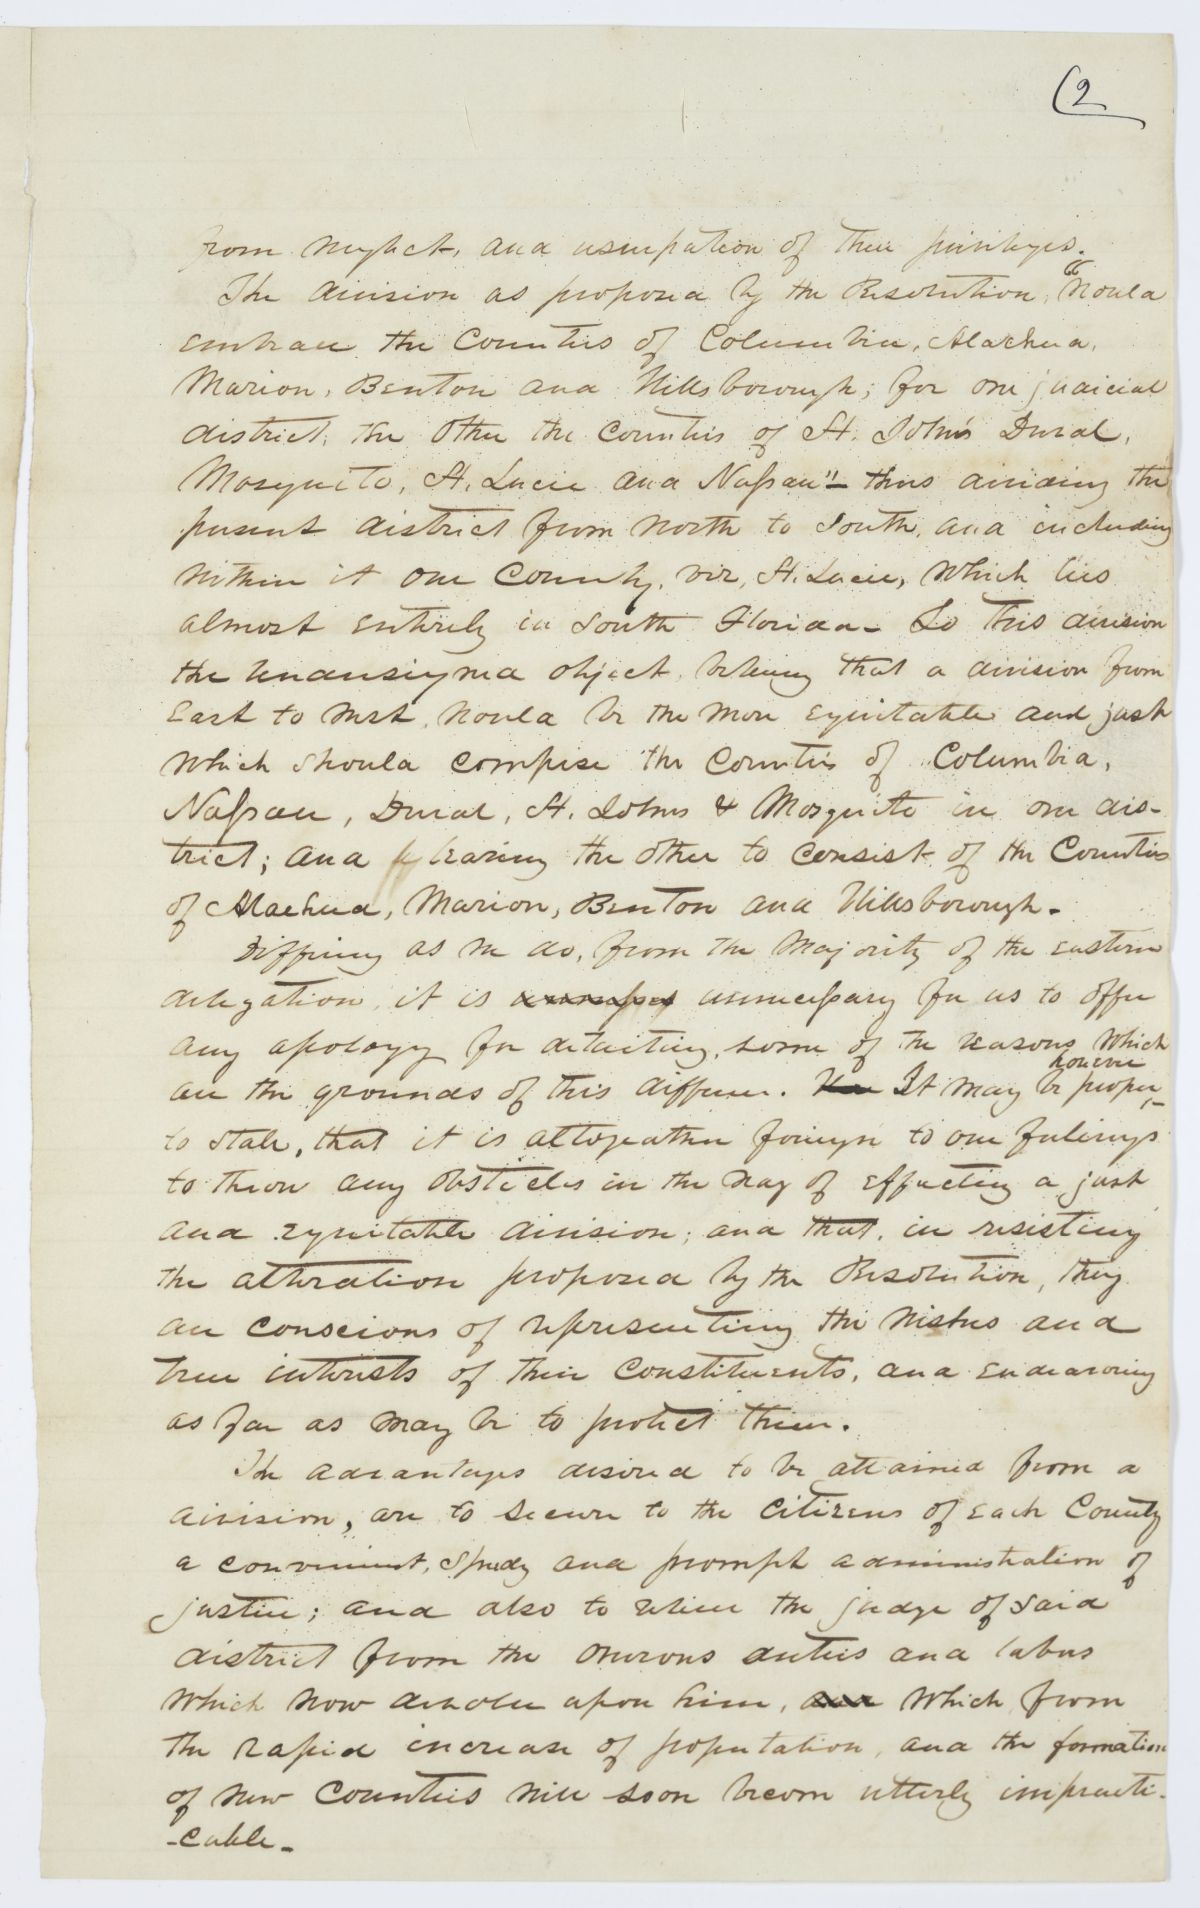 (2
from neglect, and usurpation of their privileges.
The division as proposed by the Resolution, "Would
embrace the Counties of Columbia, Alachua,
Marion, Benton and Hillsborough; for one judicial
district; the other the counties of St. John's Duval,
Mosquito, St. Lucie and Nassau"- thus dividing the
present district from North to South, and including
within it one County, viz, St. Lucie, which lies
almost entirely in South Florida- To this division
the undersigned object, believing that a division from
East to West, would be the more equitable and just
which should comprise the Counties of Columbia,
Nassau, Duval, St. Johns & Mosquito in one dis-
trict; and leaving the other to consist of the Counties
of Alachua, Marion, Benton and Hillsborough-
Differing as we do, from the majority of the eastern
delegation, it is unnecessary for us to offer
any apology for detailing, some of the reasons which
are the grounds of this difference. It may be however proper,-
to state, that it is altogether foreign to our feelings
to throw any obsticles in the way of effecting a just
and equitable division; and that, in resisting
the alteration proposed by the Resolution, they
are conscious of representing the wishes and
true interests of their Constituents, and endeavoring
as far as may be to protect them.
The advantages desired to be attained from a
division, are to secure to the Citizens of each County
a convenient, speedy and prompt administration of
justice; and also to relieve the judge of said
district from the onerous duties and labors
which now devolve upon him, which from
the rapid increase of population, and the formation
of new Counties will soon become utterly impracti-
-cable-